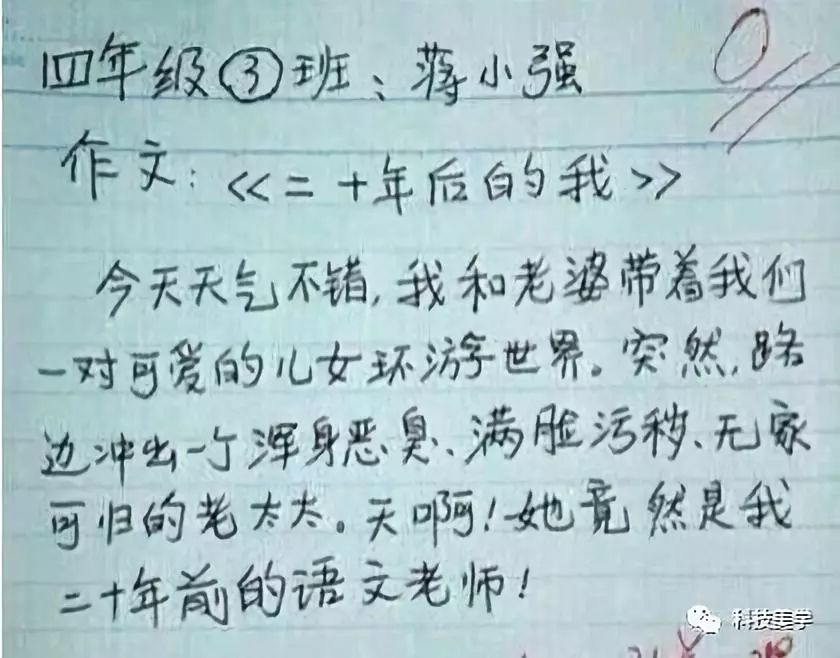 四年级③班、蒋小强
作文:《二十年后的我》
今天天气不错,我和老婆带着我们
一对可爱的儿女环游世界。突然,路
边冲出一个浑身恶臭、满脸污秽、无家
可归的老太太。天啊!她竟然是我
二十年前的语文老师!
0
科技美学